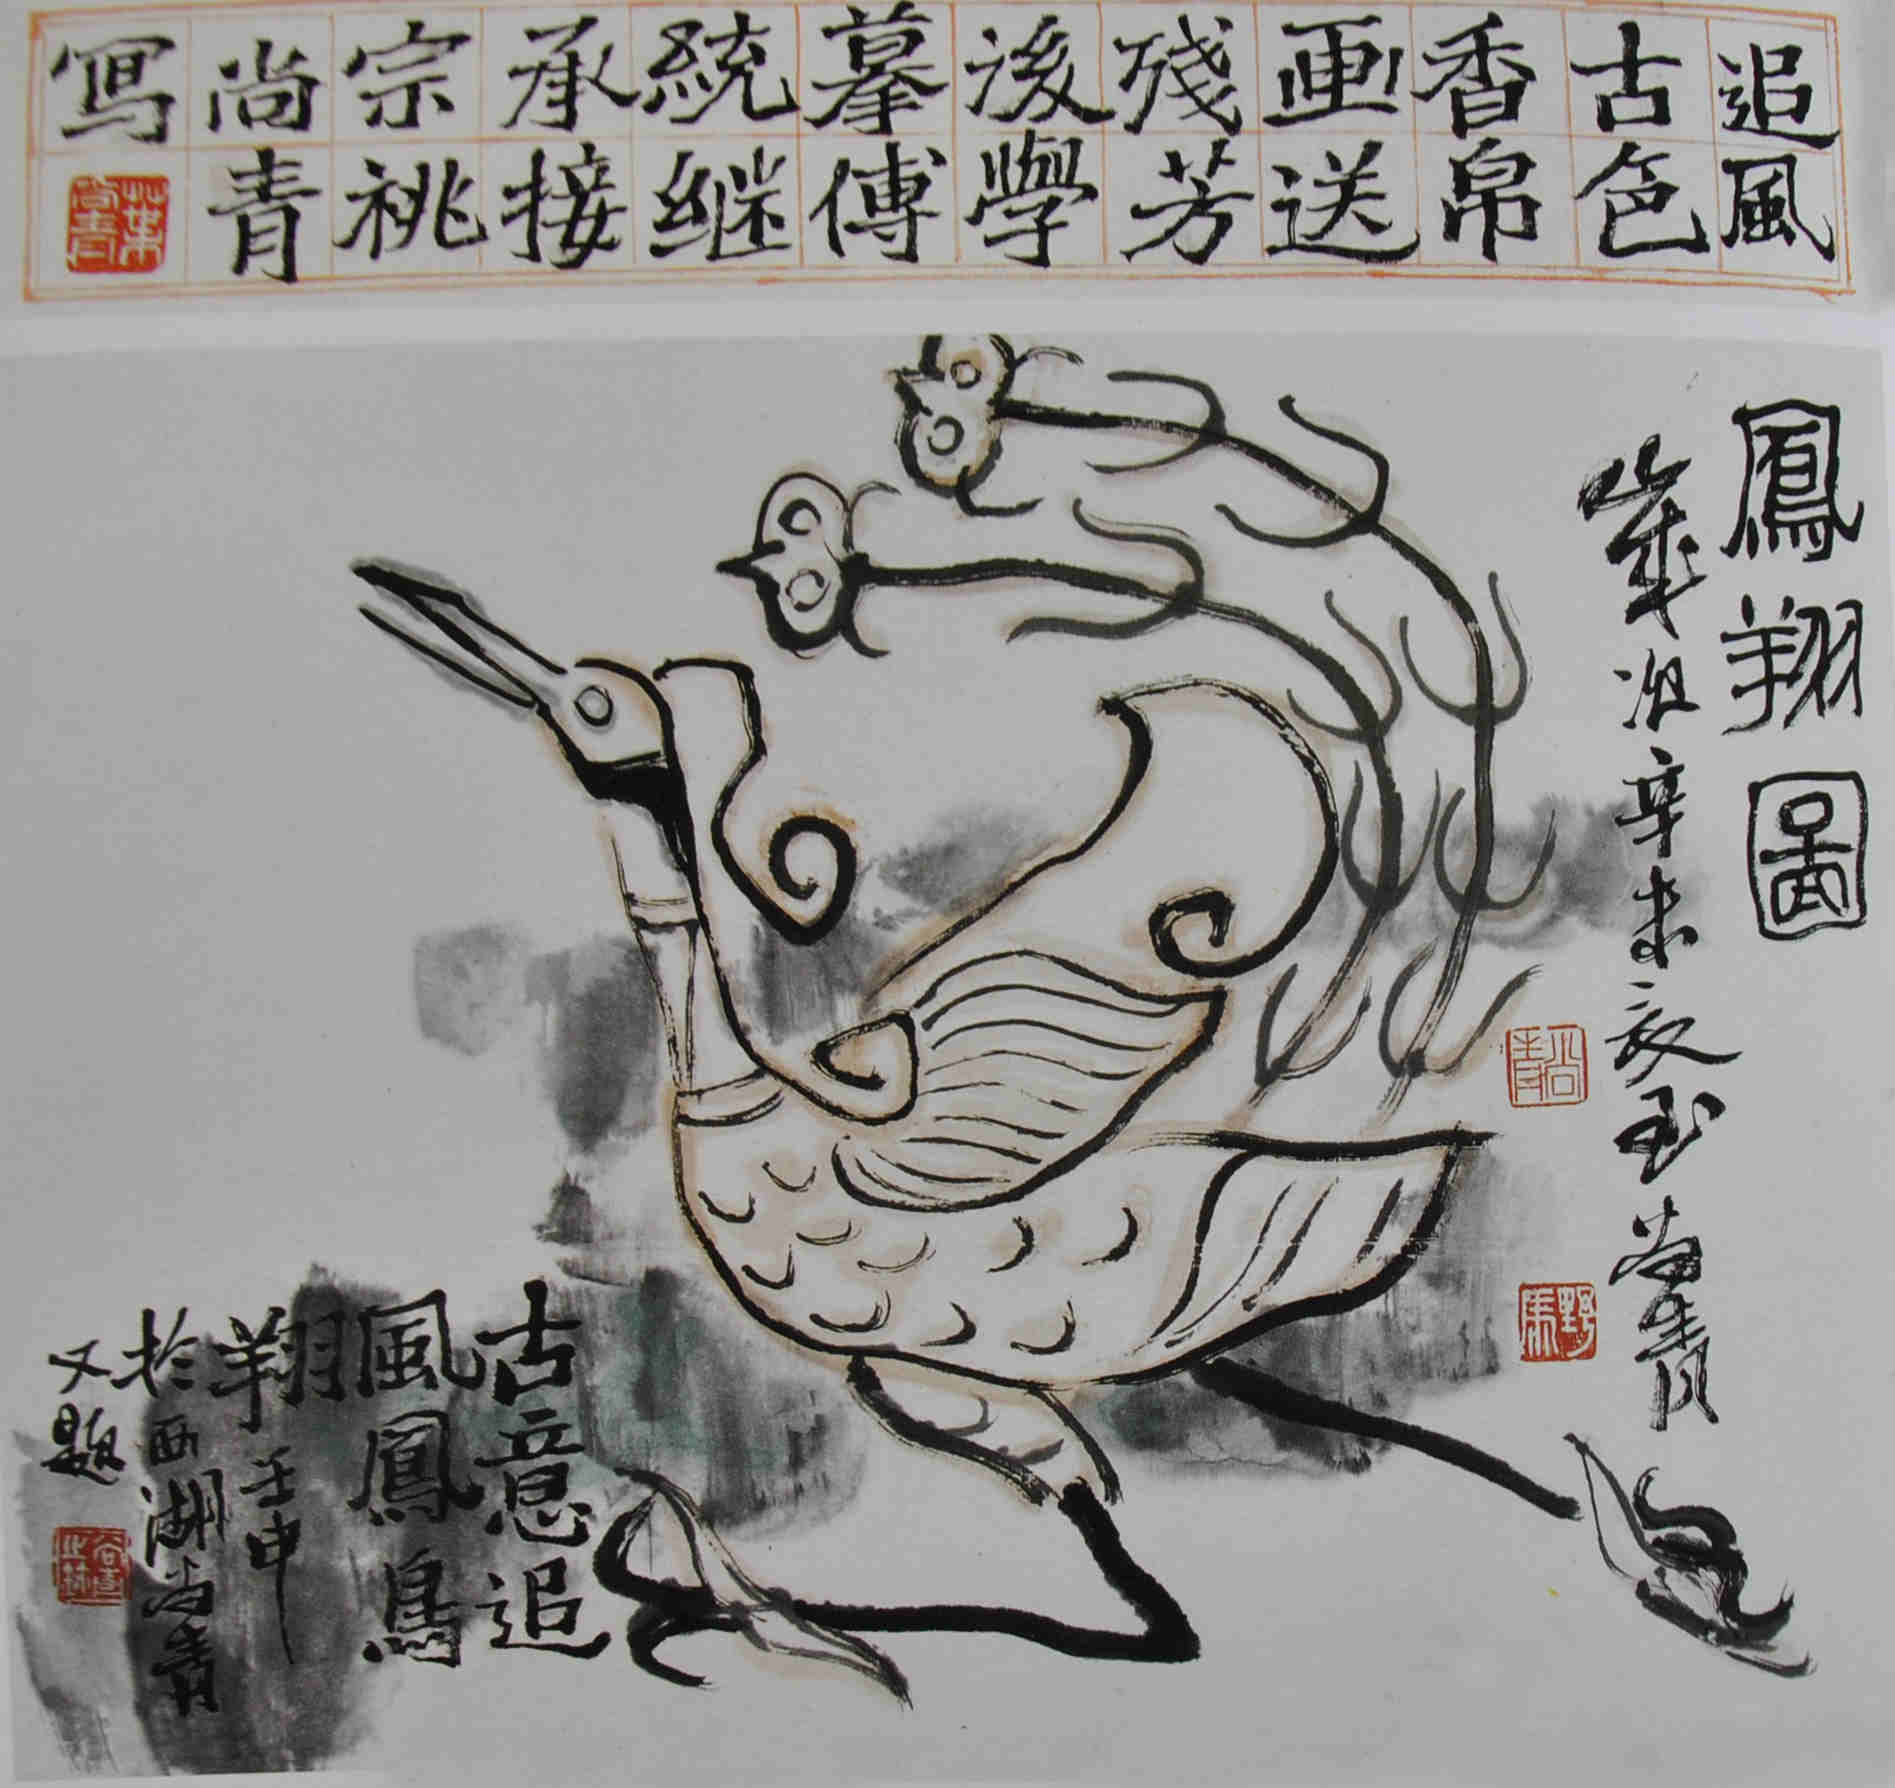 追風
古色
香帛
画送
殘芳
後學
摹傳
統継
承接
宗祧
尚青
寫
葉尚青
鳳翔圖
歲次辛未
尚青
尚青
野馬
古意追
風鳳鳥
翔壬申
於西湖尚青
又題